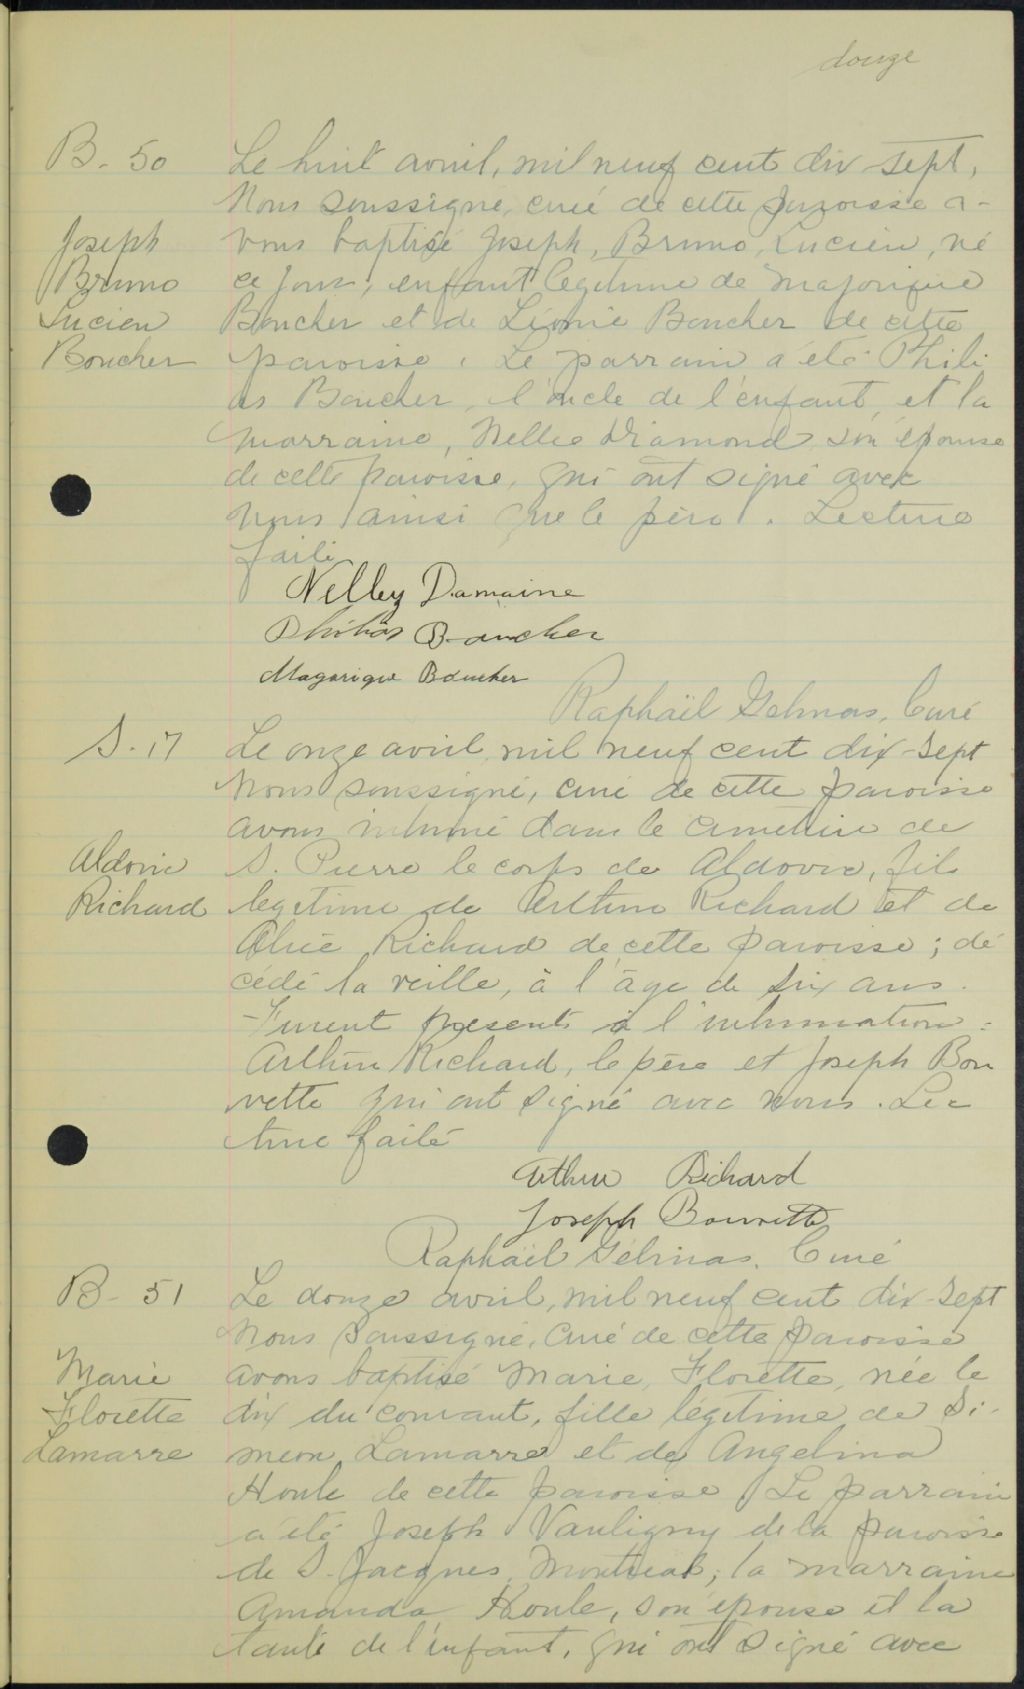 douze
B. 50
Le huit avril, mil neuf cent dix-sept,
Nous soussigné, curé de cette paroisse a-
Joseph
vons baptisé Joseph, Bruno, Lucien, né
Bruno
ce jour, enfant legitime de Majorique
Lucien
Boucher et de Léonie Boucher de cette
Boucher
paroisse. Le parrain a été Phili
as Boucher, l'oncle de l'enfant, et la
marraine, Nellie Diamond son épouse
de cette paroisse, qui ont signé avec
nous ainsi que le père. Lecture
faite
Nelley Damaine
Philias Boucher
Magorique Boucher
Raphaël Gélinas, Curé
S. 17
Le onze avril, mil neuf cent dix-sept
Nous soussigné, curé de cette paroisse
avons inhumé dans le cimetière de
Aldorie
S. Pierre le corps de Aldorie, fils
Richard
legitime de Arthur Richard et de
Alice Richard de cette paroisse; dé
cédé la veille, à l'âge de six ans.
Furent présents à l'inhumation:
Arthur Richard, le père et Joseph Bour
vette qui ont signé avec nous. Lec
ture faite
Arthur Richard
Joseph Bourvette
Raphaël Gélinas, Curé
B- 51
Le douze avril, mil neuf cent dix-sept
Nous soussigné, curé de cette paroisse
Marie
avons baptisé Marie, Florette, née le
Florette
dix du courant, fille legitime de Si-
Lamarre
meon Lamarre et de Angelina
Houle de cette paroisse Le parrain
a été Joseph Vauligny de la paroisse
de S. Jacques, Montreal, la marraine
Amanda Houle, son épouse et la
tante de l'enfant, qui ont signé avec